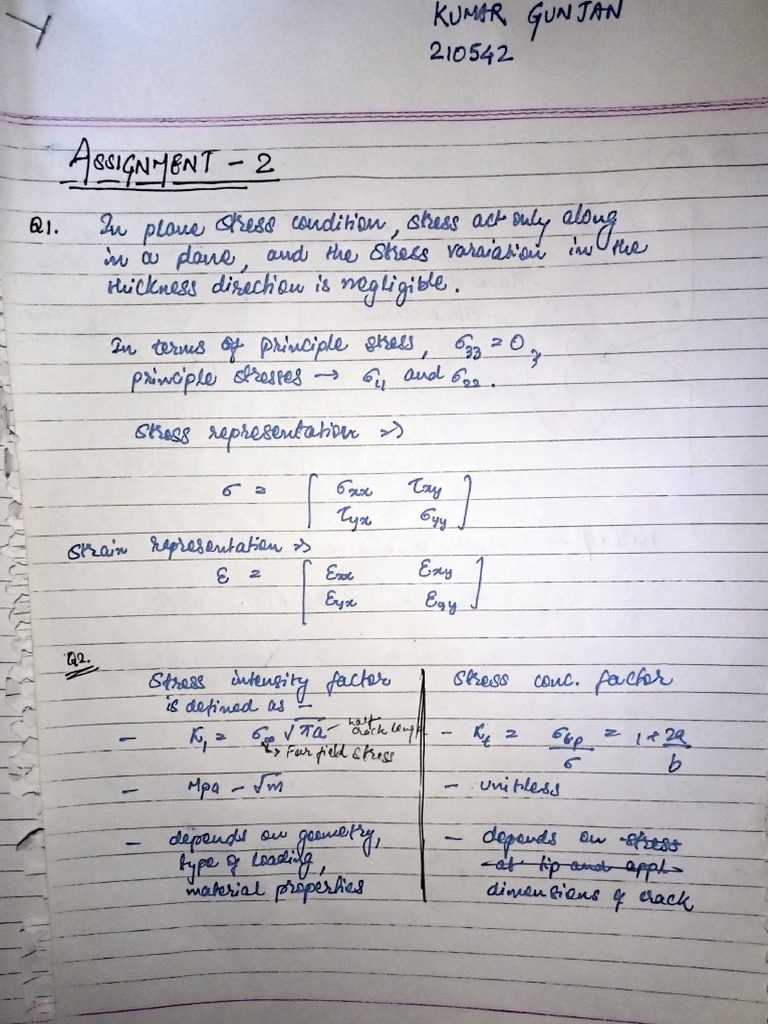 KUMAR GUNJAN
210542
ASSIGNMENT - 2
Q1. In plane stress condition, stress act only along
in a plane, and the stress varaiation in the
thickness direction is negligible.
In terms of principle stress, σ33 = 0,
principle stresses → σ11 and σ22.
Stress representation ⇒
σ = [ σxx τxy
τyx σyy ]
Strain representation ⇒
ε = [ εxx εxy
εyx εyy ]
Q2.
Stress intensity factor
is defined as –
- K1 = σ∞ √πa → half crack length
↳ Far field stress
- Mpa - √m
- depends on geometry,
type of loading,
material properties
Stress conc. factor
- Kt = σtip / σ = 1 + 2a / b
- unitless
- depends on stress
at tip and appl
dimensions of crack